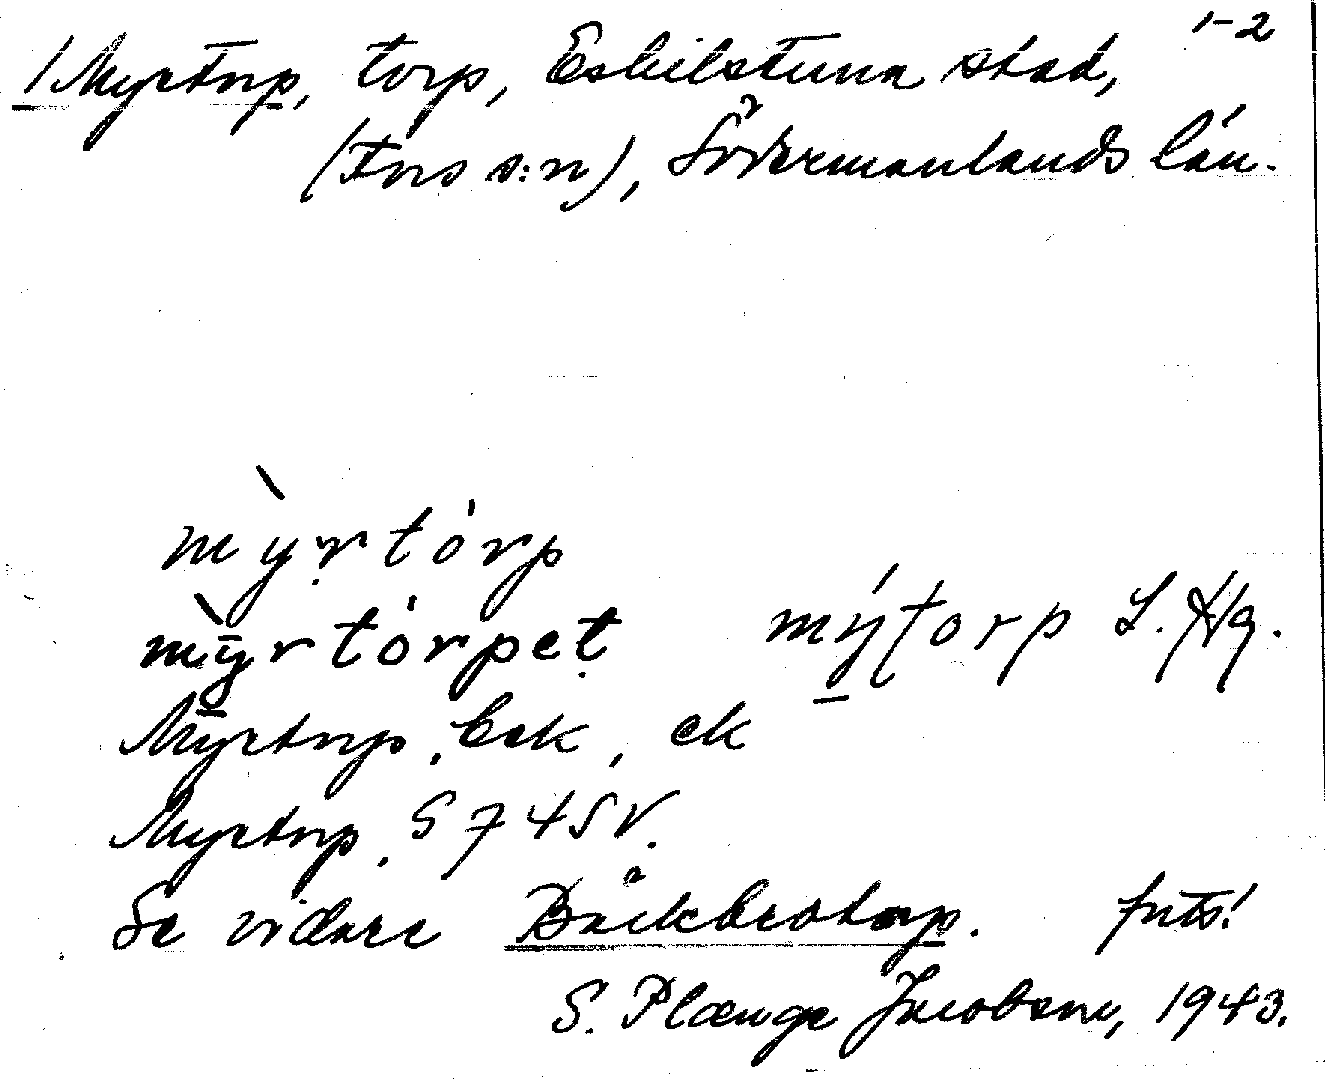 1-2
1 Myrtorp, torp, Eskilstuna stad,
(Fors s:n), Södermanlands län.
mỳrtórp
mỳrtórpet mýtorp
Myrtorp, bek, ek
Myrtorp, S 74 SV.
Se vidare forts!
S. Plænge Jacobsen, 1943.